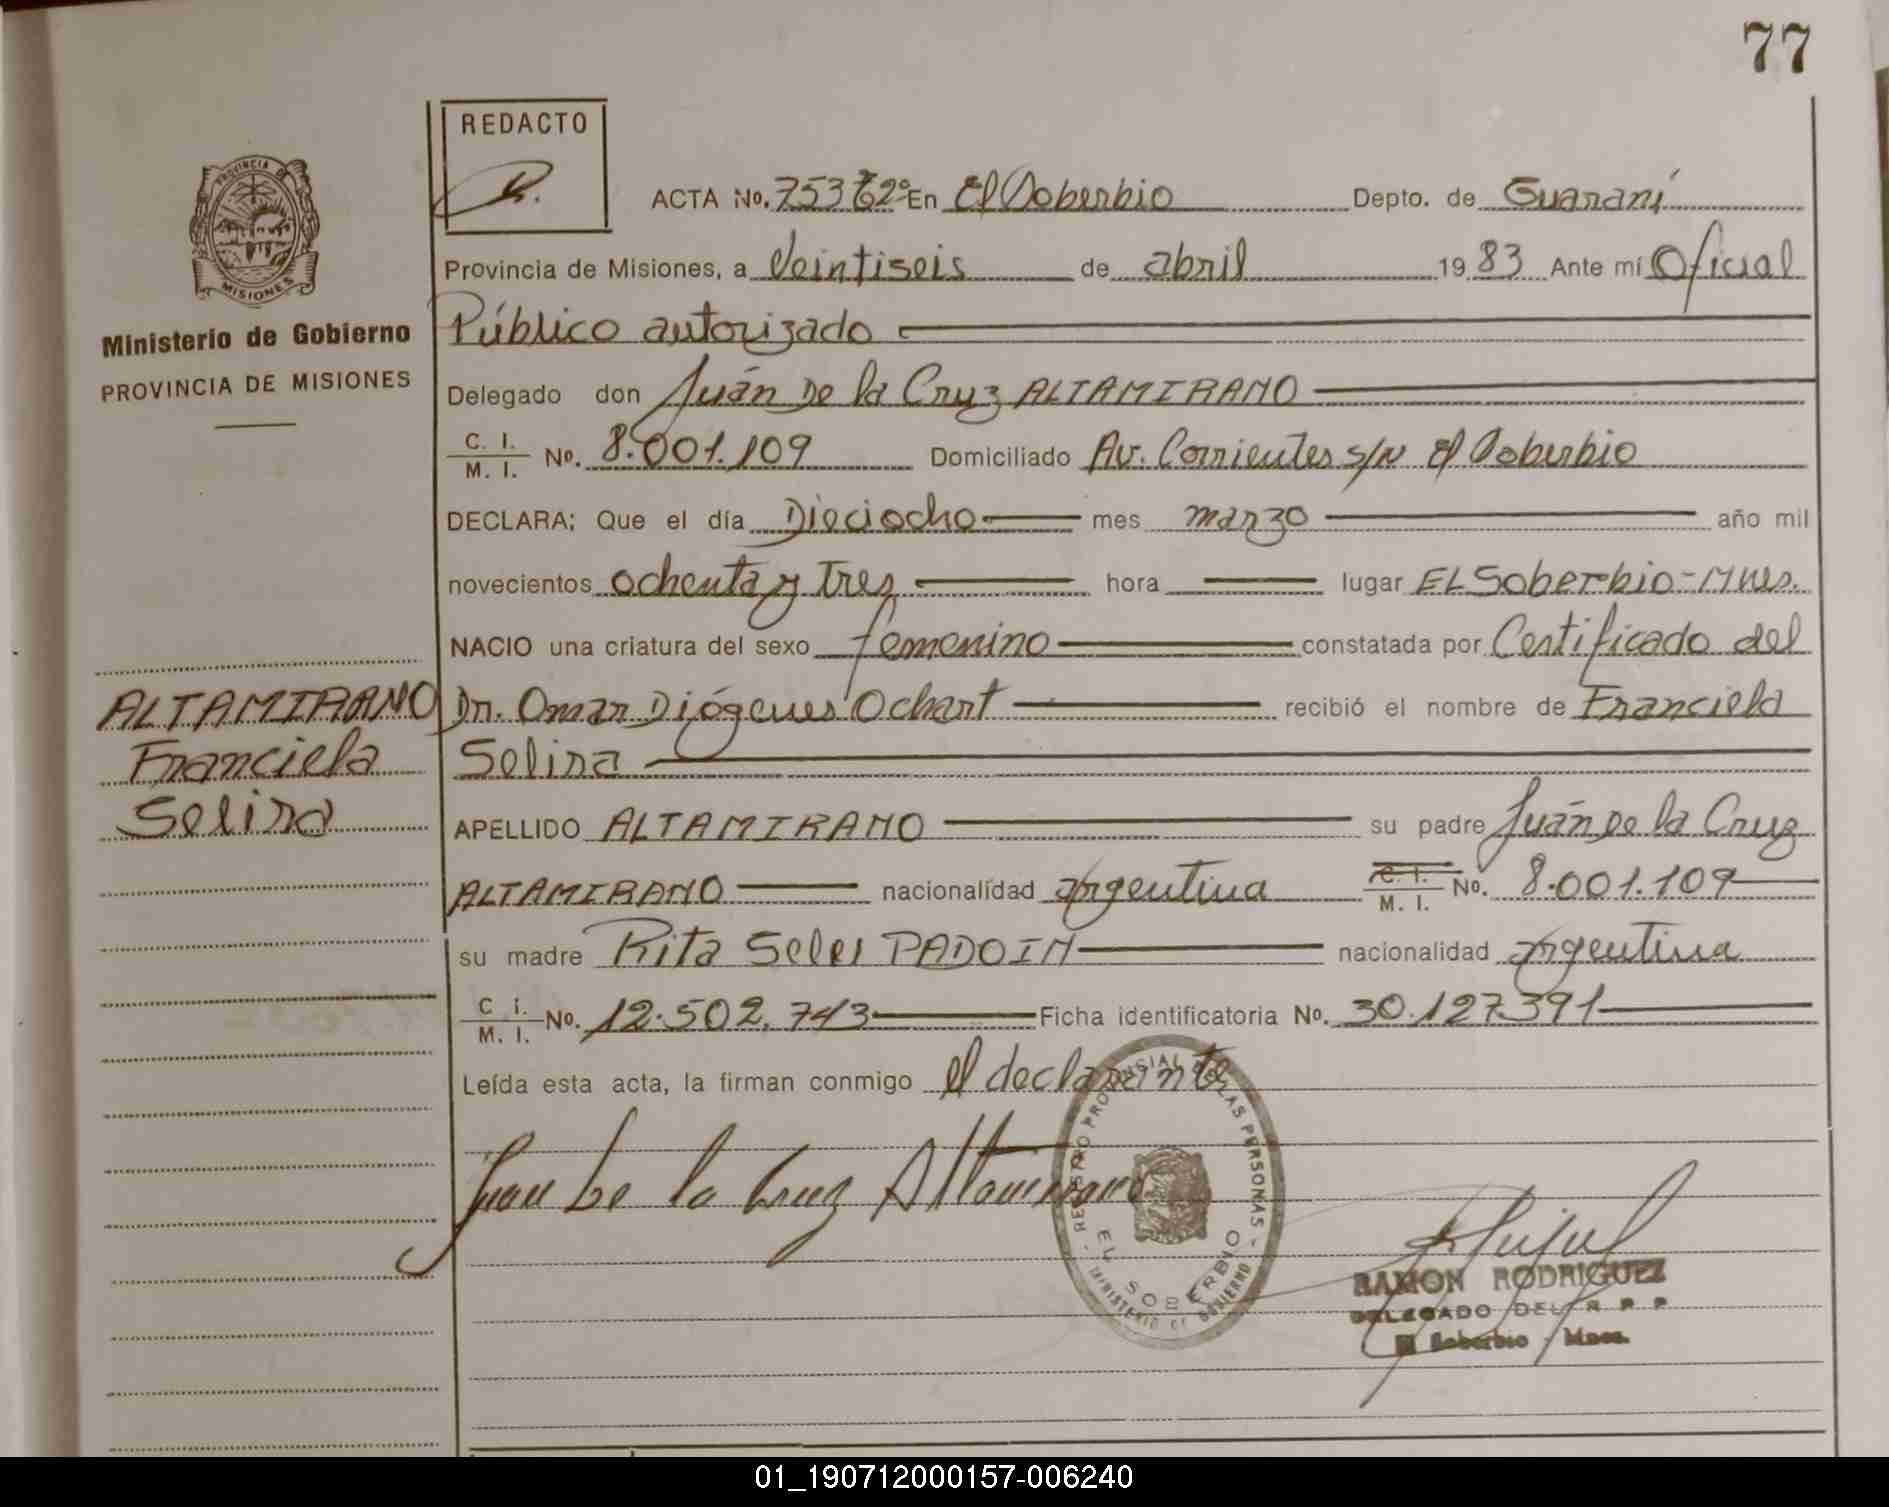 77
REDACTO
ACTA No. 753 En El Soberbio Depto. de Guaraní
Provincia de Misiones, a Veintiseis de abril 1983 Ante mí Oficial
PROVINCIA DE
MISIONES
Ministerio de Gobierno
PROVINCIA DE MISIONES
Público autorizado
Delegado don Juán De la Cruz ALTAMIRANO
C. I.
M. I. No. 8.001.109 Domiciliado Av. Corrientes s/N El Soberbio
DECLARA; Que el día Dieciocho mes marzo año mil
novecientos ochenta y Tres hora lugar EL Soberbio-Mnes.
NACIO una criatura del sexo femenino constatada por Certificado del
ALTAMIRANO
Franciela
Dr. Omar Diógenes Ochart recibió el nombre de Franciela
APELLIDO ALTAMIRANO su padre Juán De la Cruz
ALTAMIRANO nacionalidad argentina C. I.
M. I. No. 8.001.109
su madre Rita PADOIN nacionalidad argentina
C I.
M. I. No. 12.502.743 Ficha identificatoria No. 30.127.391
Leída esta acta, la firman conmigo el declarante
Juan De la Cruz Altamirano
REGISTRO PROVINCIAL DE LAS PERSONAS
EL SOBERBIO
MINISTERIO DE GOBIERNO
RAMON RODRIGUEZ
DELEGADO DEL R P P
El Soberbio - Mnes.
01_190712000157-006240